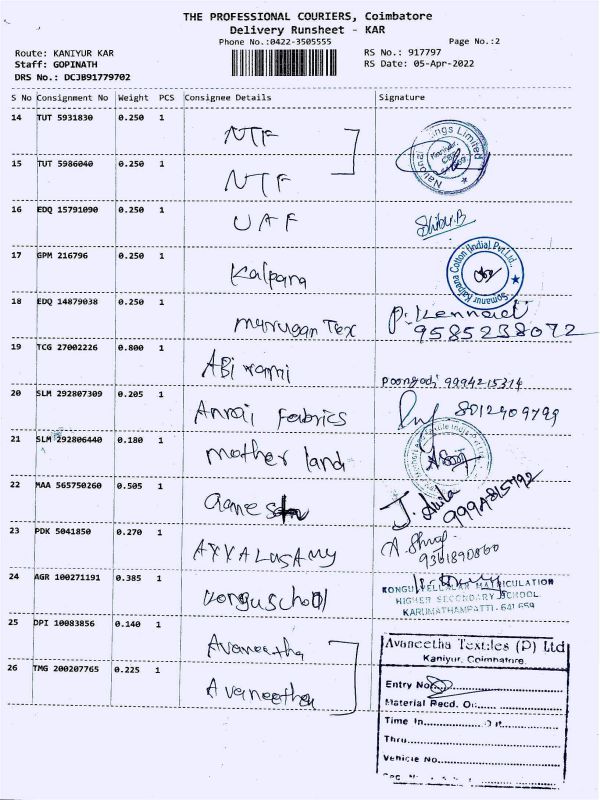 THE PROFESSIONAL COURIERS, Coimbatore
Delivery Runsheet - KAR
Phone No.:0422-3505555
Page No.:2
Route: KANIYUR KAR
RS No.: 917797
Staff: GOPINATH
RS Date: 05-Apr-2022
DRS No.: DCJB91779702
S No Consignment No Weight PCS Consignee Details Signature
14 TUT 5931830 0.250 1 NTF
15 TUT 5986040 0.250 1 NTF
16 EDQ 15791090 0.250 1 UAF Shibu.B
17 GPM 216796 0.250 1 Kalpana
Somanur Kalpana Cotton (India) Pvt.Ltd.,
18 EDQ 14879038 0.250 1 murugan Tex P. Kennadi
9585238072
19 TCG 27002226 0.800 1 ABi rami poongodi 9994215314
20 SLM 292807309 0.205 1 Annai Fabrics 8012409799
21 SLM 292806440 0.180 1 mother land
22 MAA 565750260 0.505 1 J. Akila
23 PDK 5041850 0.270 1 AYYALUSAMY A.
9361890860
24 AGR 100271191 0.385 1 kongu school
KONGU VELLALAR MATRICULATION
HIGHER SECONDARY SCHOOL
KARUMATHAMPATTI - 641 659
25 DPI 10083856 0.140 1 Avaneetha
26 TMG 200207765 0.225 1 Avaneetha
Avaneetha Textiles (P) Ltd
Kaniyur, Coimbatore.
Entry No
Material Recd. On
Time In
Thru
Vehicle No